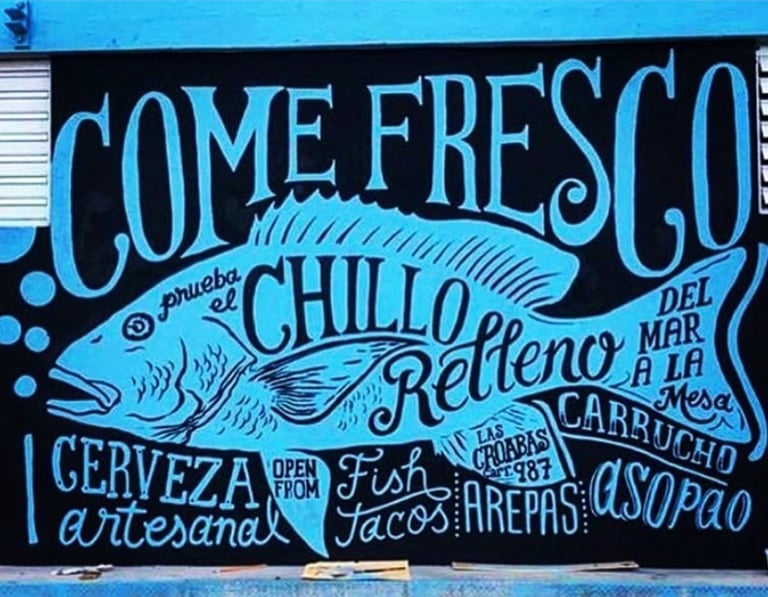 COME FRESCO
prueba
el
CHILLO
Relleno
DEL
MAR
A LA
Mesa
CARRUCHO
CERVEZA
artesanal
OPEN
FROM
Fish
Tacos
LAS
CROABAS
Carr. 987
AREPAS
asopao